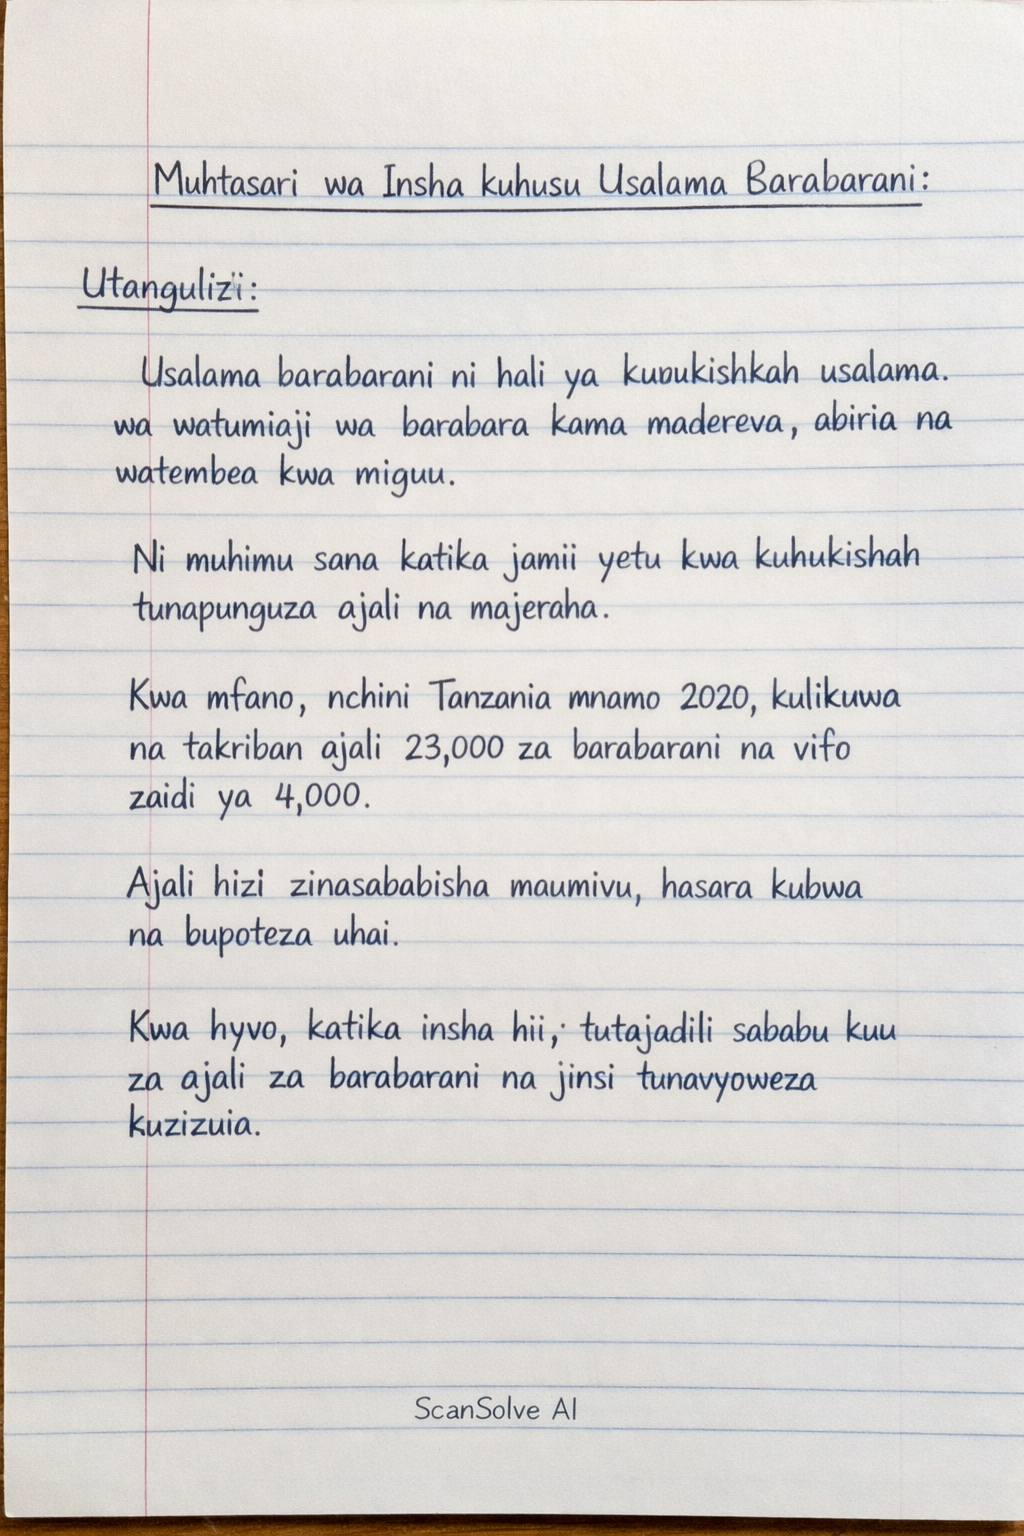 Muhtasari wa Insha kuhusu Usalama Barabarani:
Utangulizi:
Usalama barabarani ni hali ya kuvukishkah usalama.
wa watumiaji wa barabara kama madereva, abiria na
watembea kwa miguu.
Ni muhimu sana katika jamii yetu kwa kuhukishah
tunapunguza ajali na majeraha.
Kwa mfano, nchini Tanzania mnamo 2020, kulikuwa
na takriban ajali 23,000 za barabarani na vifo
zaidi ya 4,000.
Ajali hizi zinasababisha maumivu, hasara kubwa
na bupoteza uhai.
Kwa hyvo, katika insha hii, tutajadili sababu kuu
za ajali za barabarani na jinsi tunavyoweza
kuzizuia.
ScanSolve AI